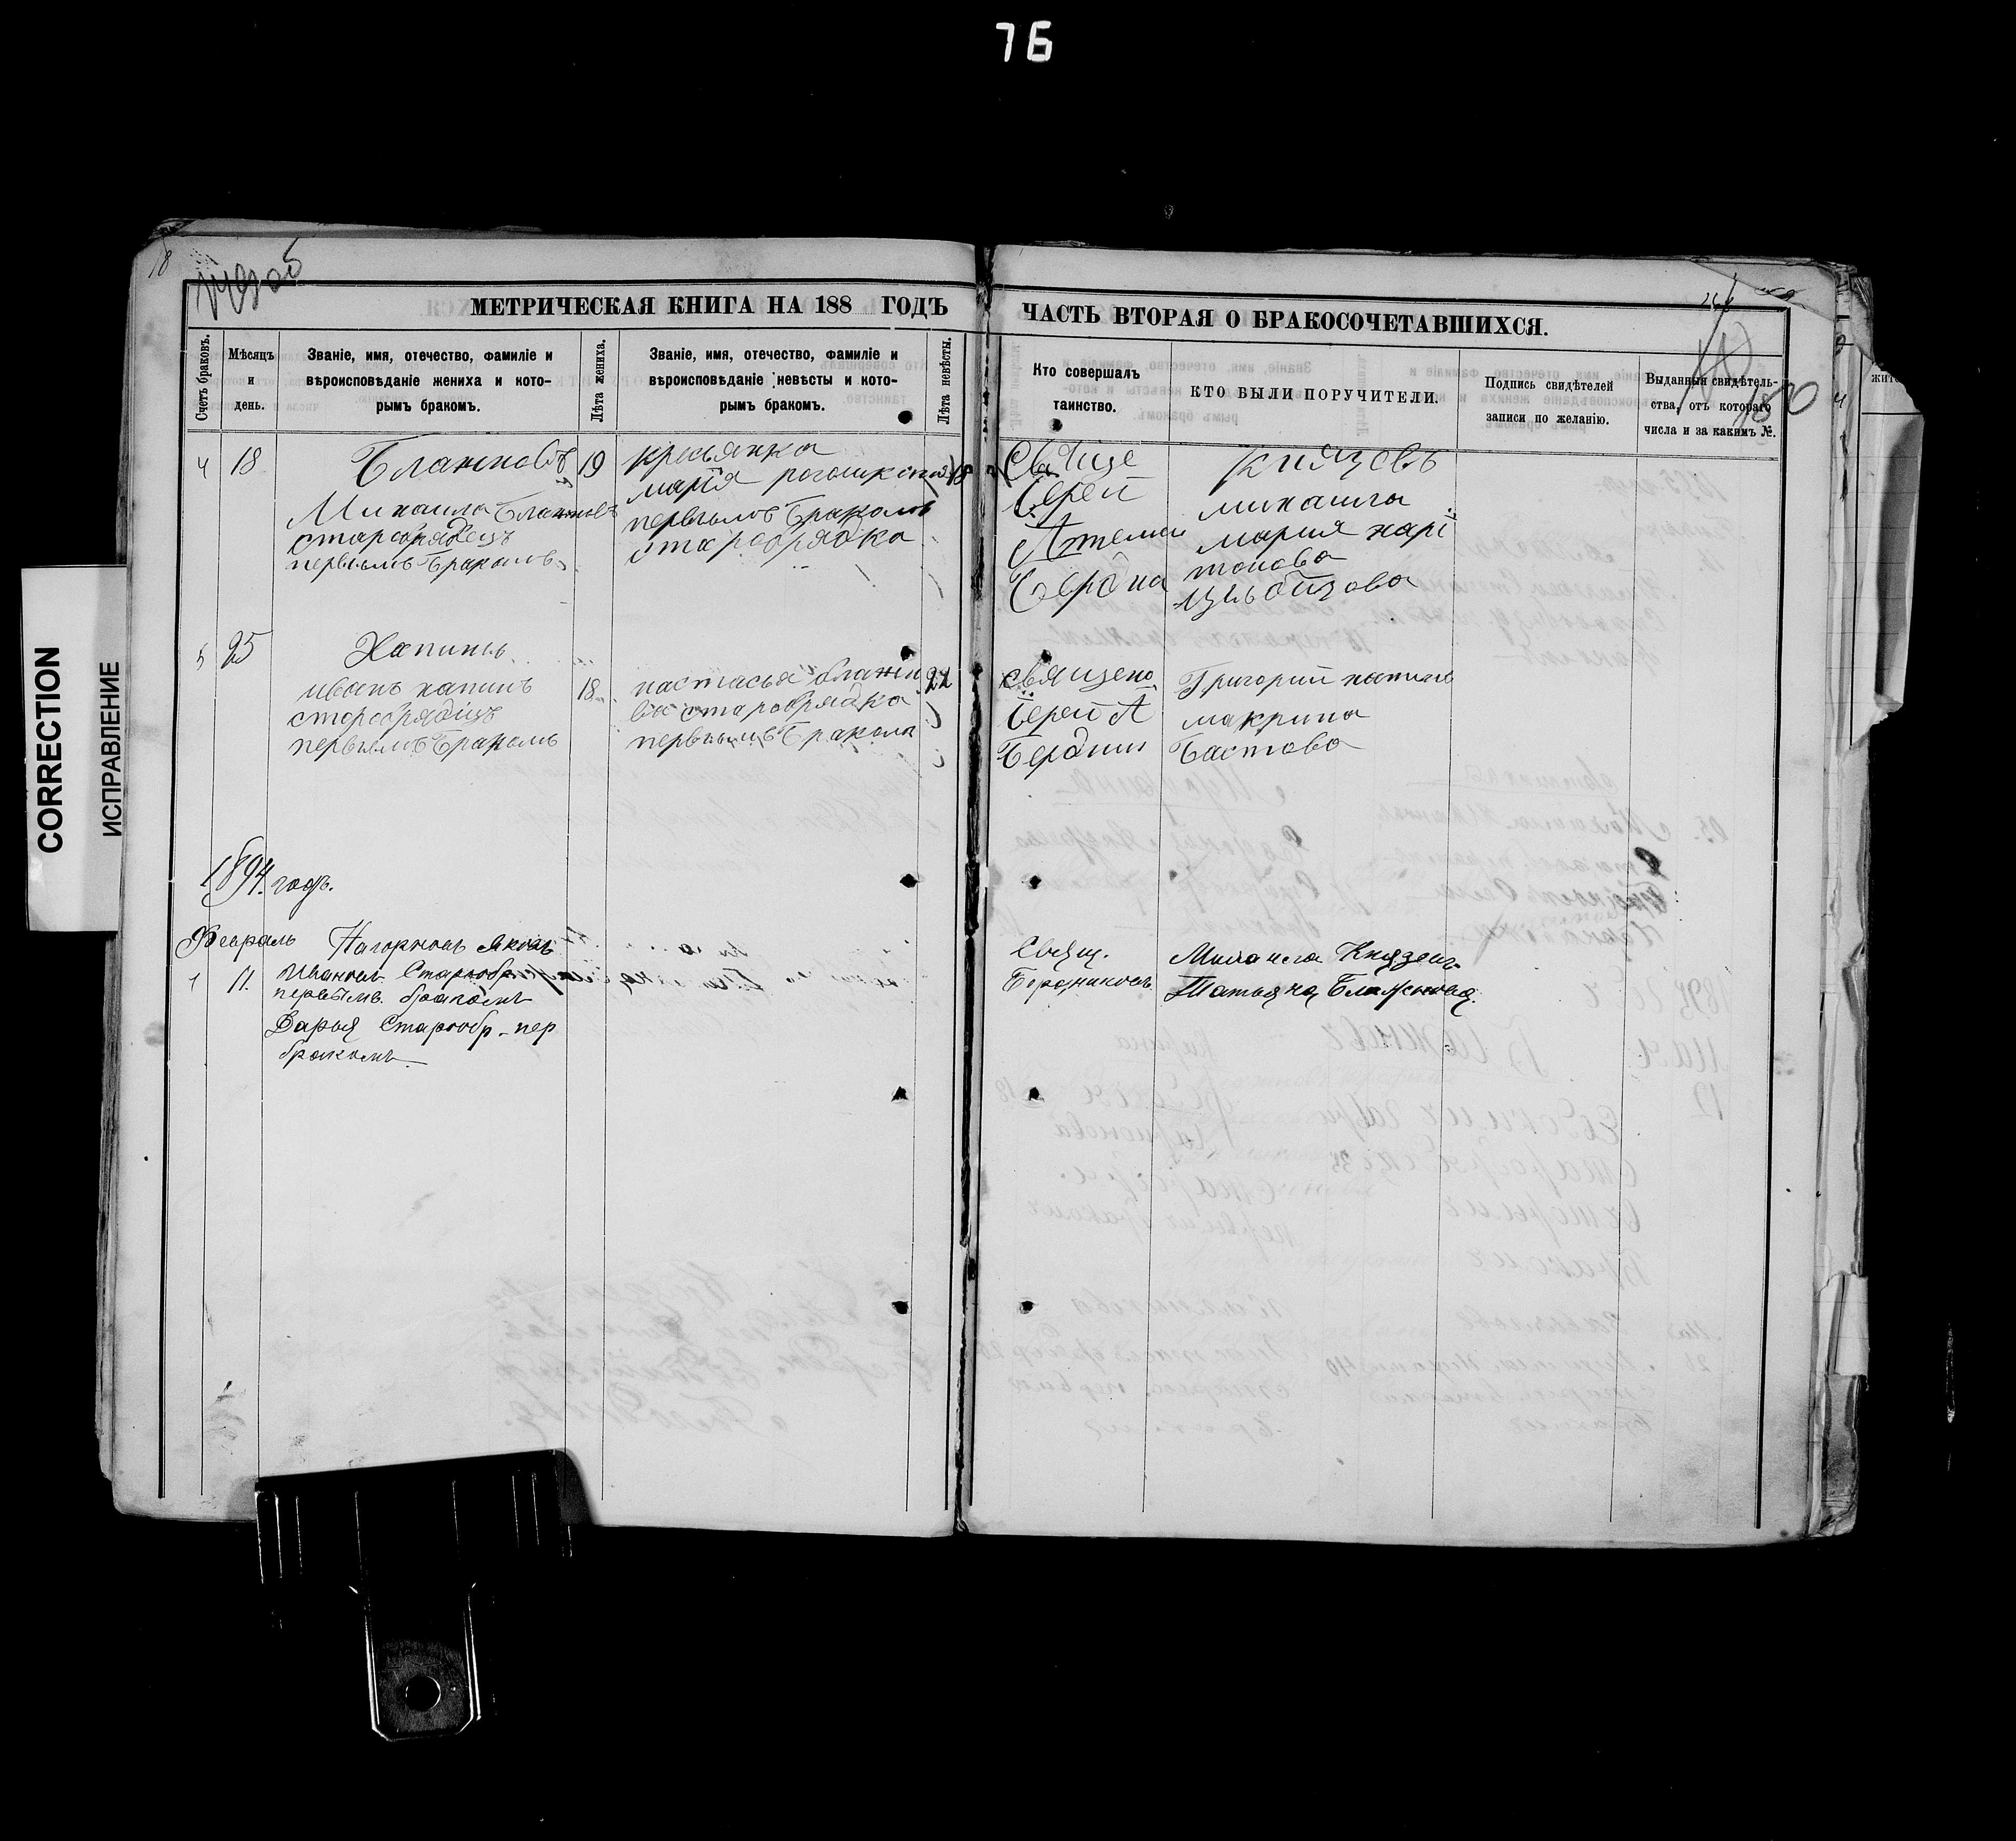 76
CORRECTION
ИСПРАВЛЕНІЕ
18
МЕТРИЧЕСКАЯ КНИГА НА 188 ГОДЪ
Счетъ браковъ.
Мѣсяцъ и день.
Званіе, имя, отечество, фамиліе и вѣроисповѣданіе жениха и которымъ бракомъ.
Лѣта жениха.
Званіе, имя, отечество, фамиліе и вѣроисповѣданіе невѣсты и которымъ бракомъ.
Лѣта невѣсты.
4 18
Блажновъ
Михаила Блажновъ
старобрядецъ
первымъ бракомъ
19
кресьянка
мария
первымъ бракомъ
старобрядка
18
5 25
Хапинъ
иванъ хапинъ
старобрядіцъ
первымъ бракомъ
18
настасья блажн
ва старобрядка
первымъ бракомъ
22
1894. годъ.
Февраль
1 11.
Нагорновъ Яковъ
Ивановъ Старообр.
первымъ бракомъ
Дарья Старообр. пер
бракомъ
ЧАСТЬ ВТОРАЯ О БРАКОСОЧЕТАВШИХСЯ.
Кто совершалъ таинство.
КТО БЫЛИ ПОРУЧИТЕЛИ.
Подпись свидѣтелей записи по желанію.
Выданныя свидѣтельства, отъ котораго числа и за какимъ №.
180
Свяще
Іерей
Артемей
Бердна
Князевъ
михаила
мария харі
тонова
священо
Іерей А
Бердни
Григорий хапинъ
макрина
Бастова
Свящ.
Бердниковъ
Михаила Князевъ
Татьяна Блажнова.